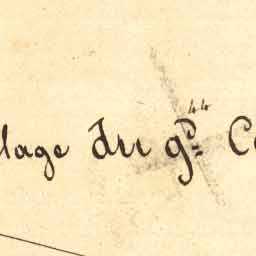 lage du g.d C